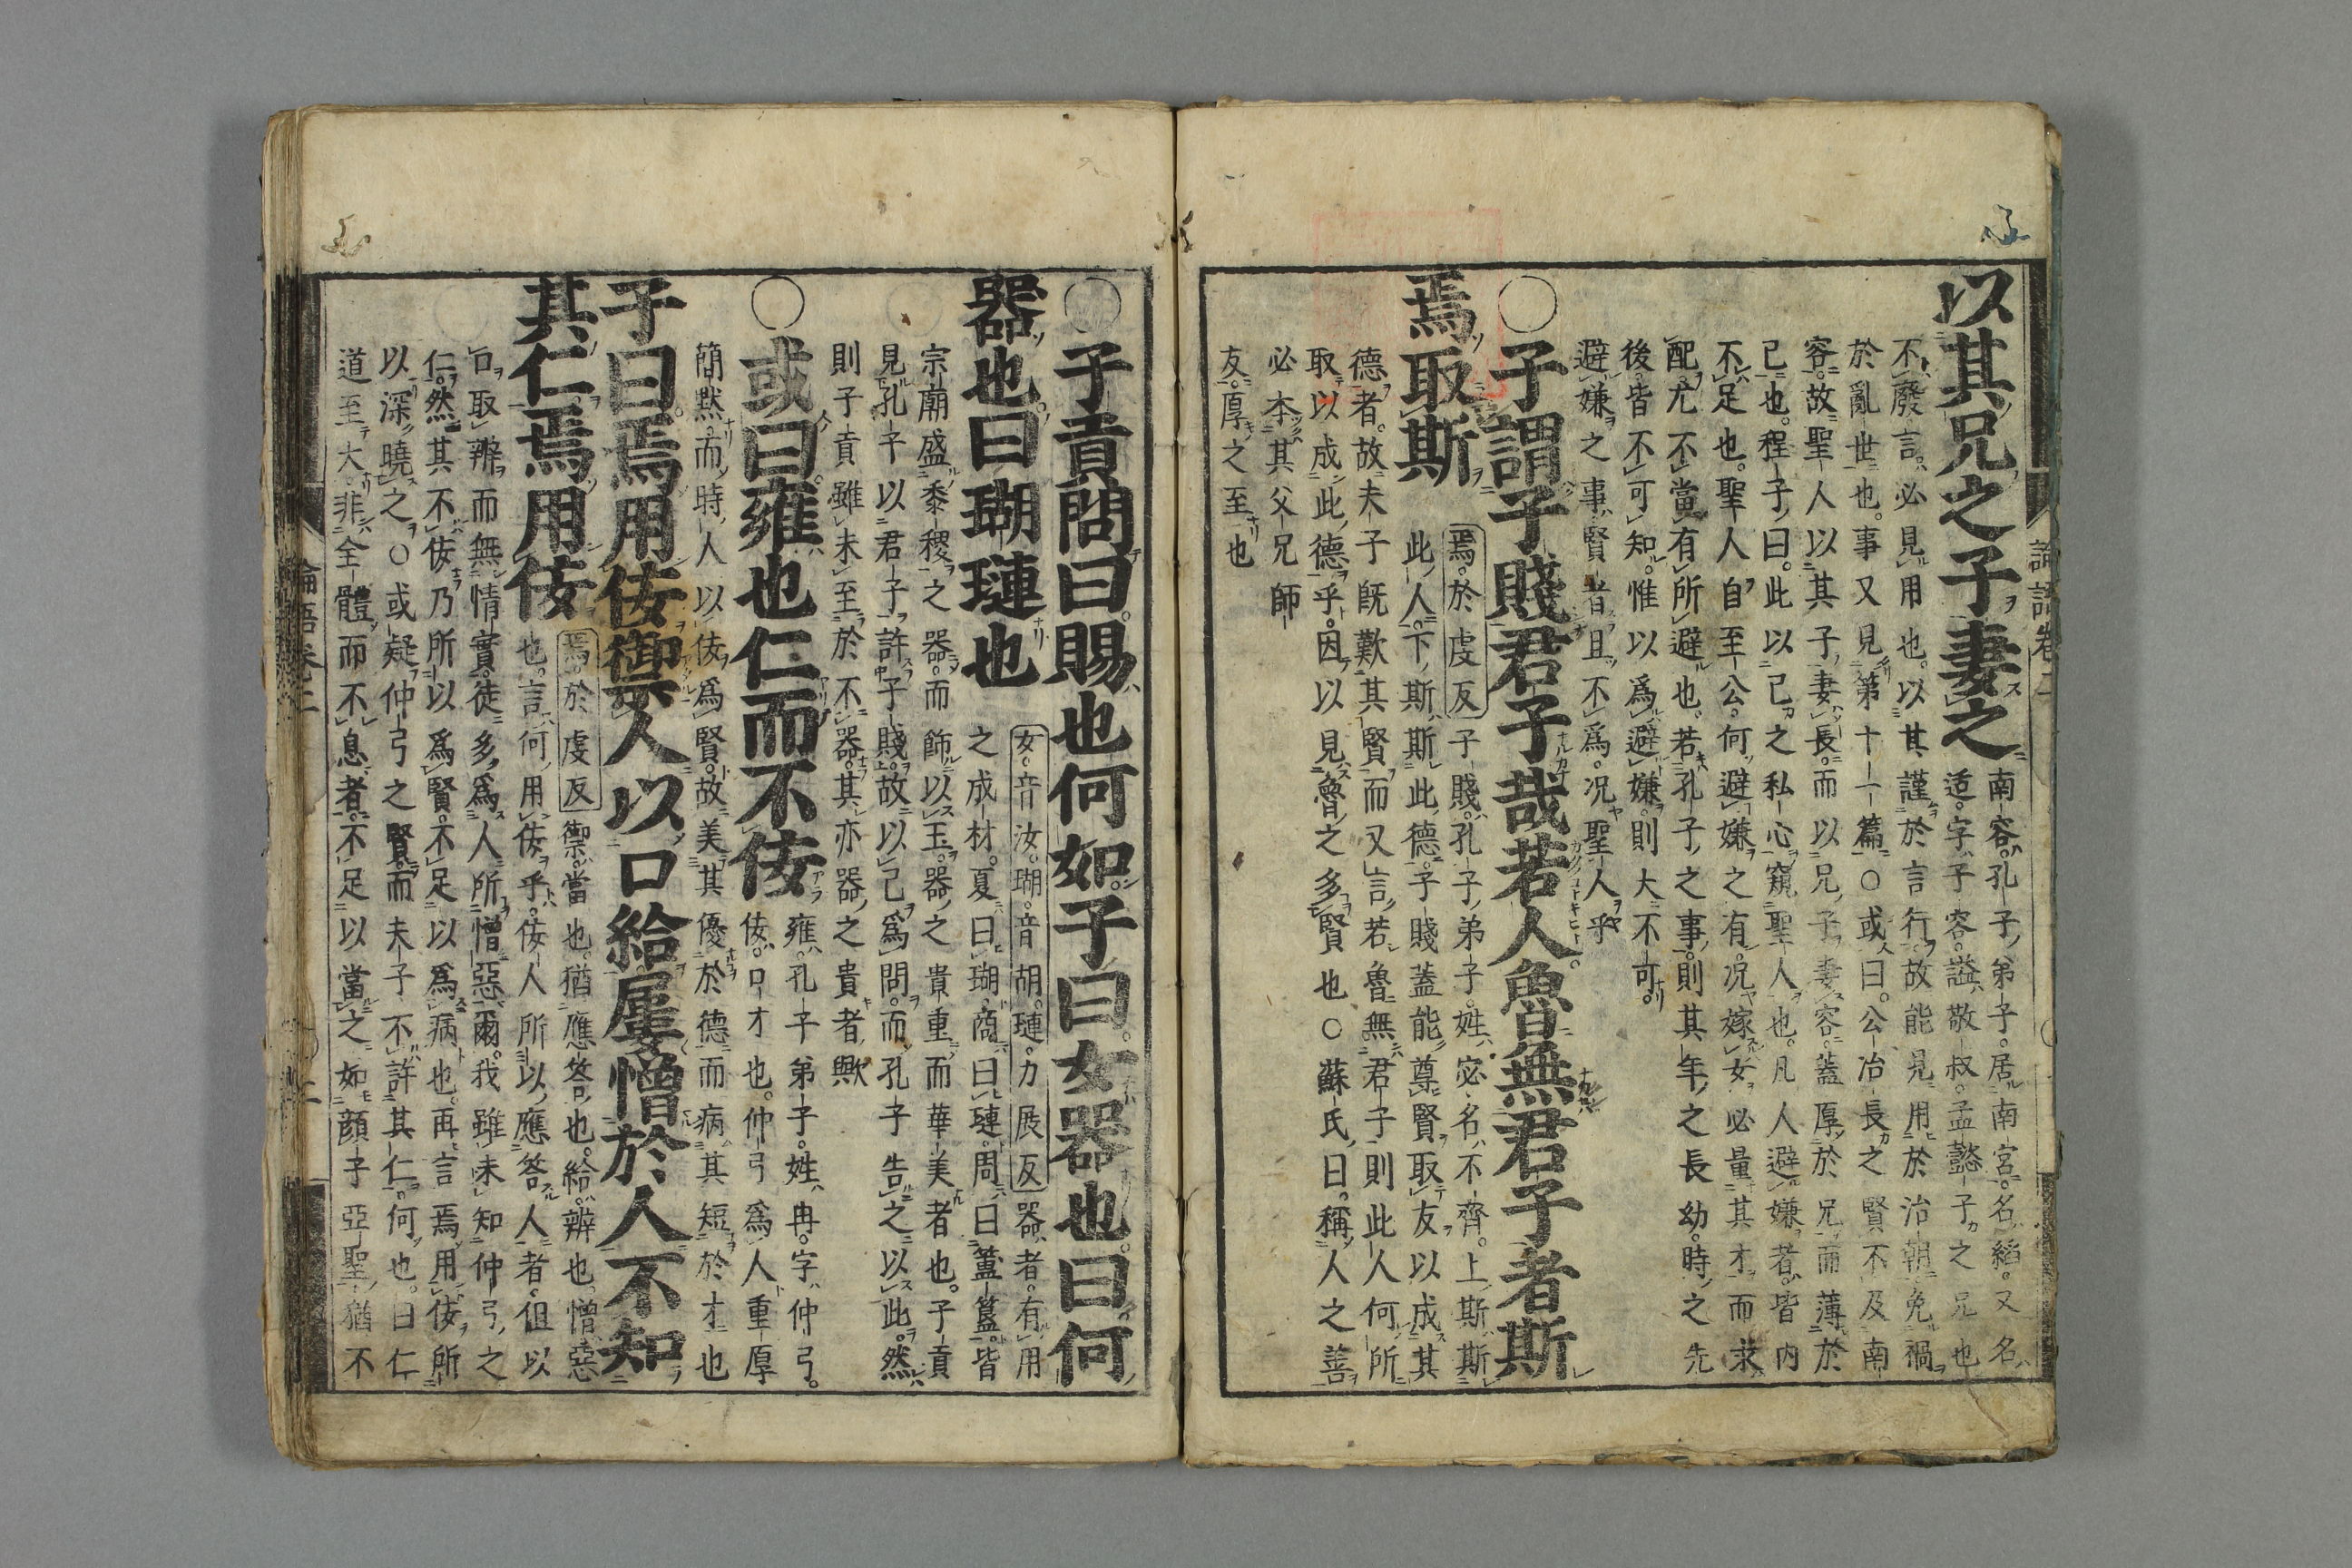 以其兄之子妻之
南容孔子弟子居南宮名縚又名
适字子容謚敬叔孟懿子之兄也
不廢言必見用也以其謹於言行故能見用於治朝免禍
於亂世也事又見第十一篇○或曰公冶長之賢不及南
容故聖人以其子妻長而以兄子妻容蓋厚於兄而薄於
己也程子曰此以己之私心窺聖人也凡人避嫌者皆内
不足也聖人自至公何避嫌之有况嫁女必量其才而求
配尤不當有所避也若孔子之事則其年之長幼時之先
後皆不可知惟以爲避嫌則大不可
避嫌之事賢者且不爲况聖人乎
○子謂子賤君子哉若人魯無君子者斯
焉取斯
焉於虔反子賤孔子弟子姓宓名不齊上斯斯
此人下斯斯此德子賤蓋能尊賢取友以成其
德者故夫子既歎其賢而又言若魯無君子則此人何所
取以成此德乎因以見魯之多賢也○蘇氏曰稱人之善
必本其父兄師
友厚之至也
論語卷二
○子貢問曰賜也何如子曰女器也曰何
器也曰瑚璉也
女音汝瑚音胡璉力展反器者有用
之成材夏曰瑚商曰璉周曰簠簋皆
宗廟盛黍稷之器而飾以玉器之貴重而華美者也子貢
見孔子以君子許子賤故以己爲問而孔子告之以此然
則子貢雖未至於不器其亦器之貴者歟
○或曰雍也仁而不佞
雍孔子弟子姓冉字仲弓
佞口才也仲弓爲人重厚
簡黙而時人以佞爲賢故美其優於德而病其短於才也
子曰焉用佞禦人以口給屢憎於人不知
其仁焉用佞
焉於虔反禦當也猶應答也給辨也憎惡
也言何用佞乎佞人所以應答人者但以
口取辨而無情實徒多爲人所憎惡爾我雖未知仲弓之
仁然其不佞乃所以爲賢不足以爲病也再言焉用佞所
以深曉之○或疑仲弓之賢而夫子不許其仁何也曰仁
道至大非全體而不息者不足以當之如顔子亞聖猶不
論語卷二